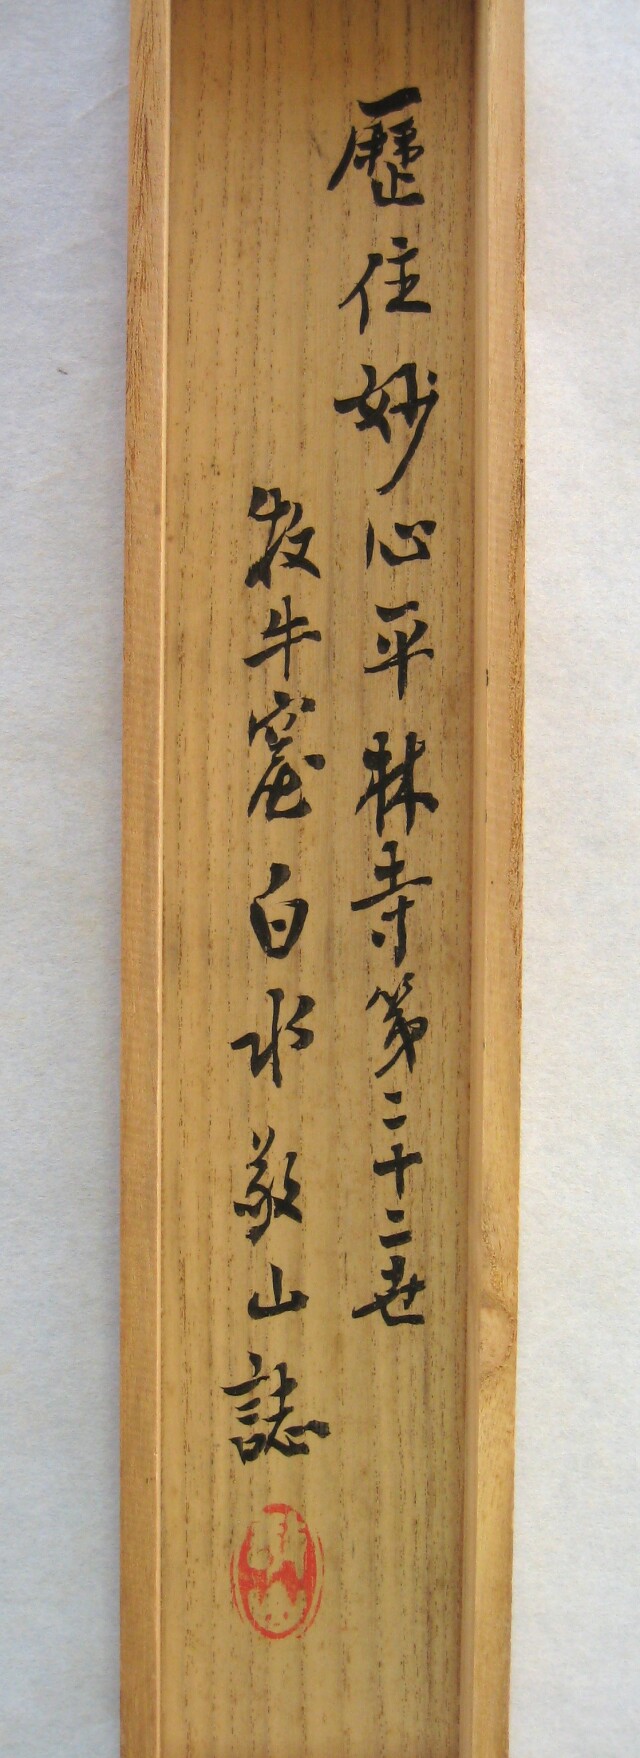 歷住妙心平林寺第二十二世
牧牛窟白水敬山誌